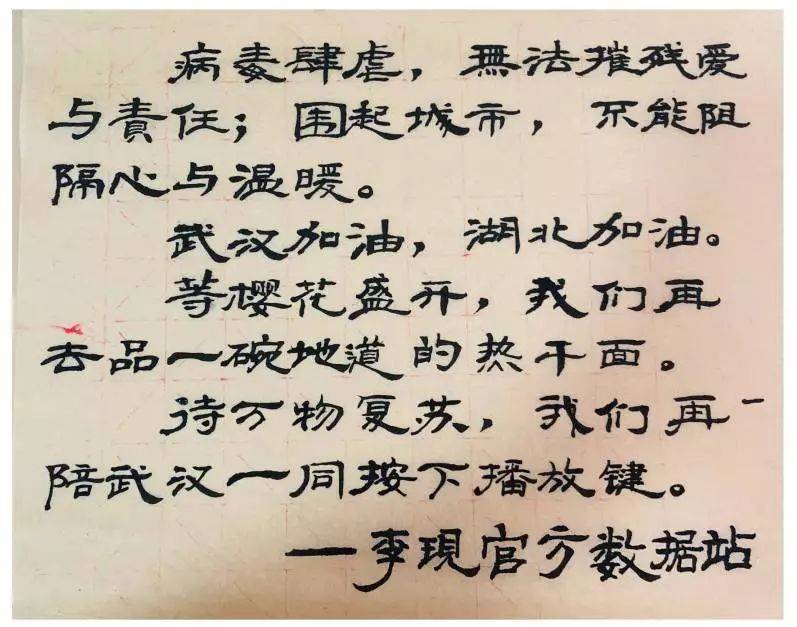 病毒肆虐，無法摧残爱
与責任；围起城市，不能阻
隔心与温暖。
武汉加油，湖北加油。
等樱花盛开，我们再
去品一碗地道的热干面。
待万物复苏，我们再一
陪武汉一同按下播放键。
一李現官方数据站